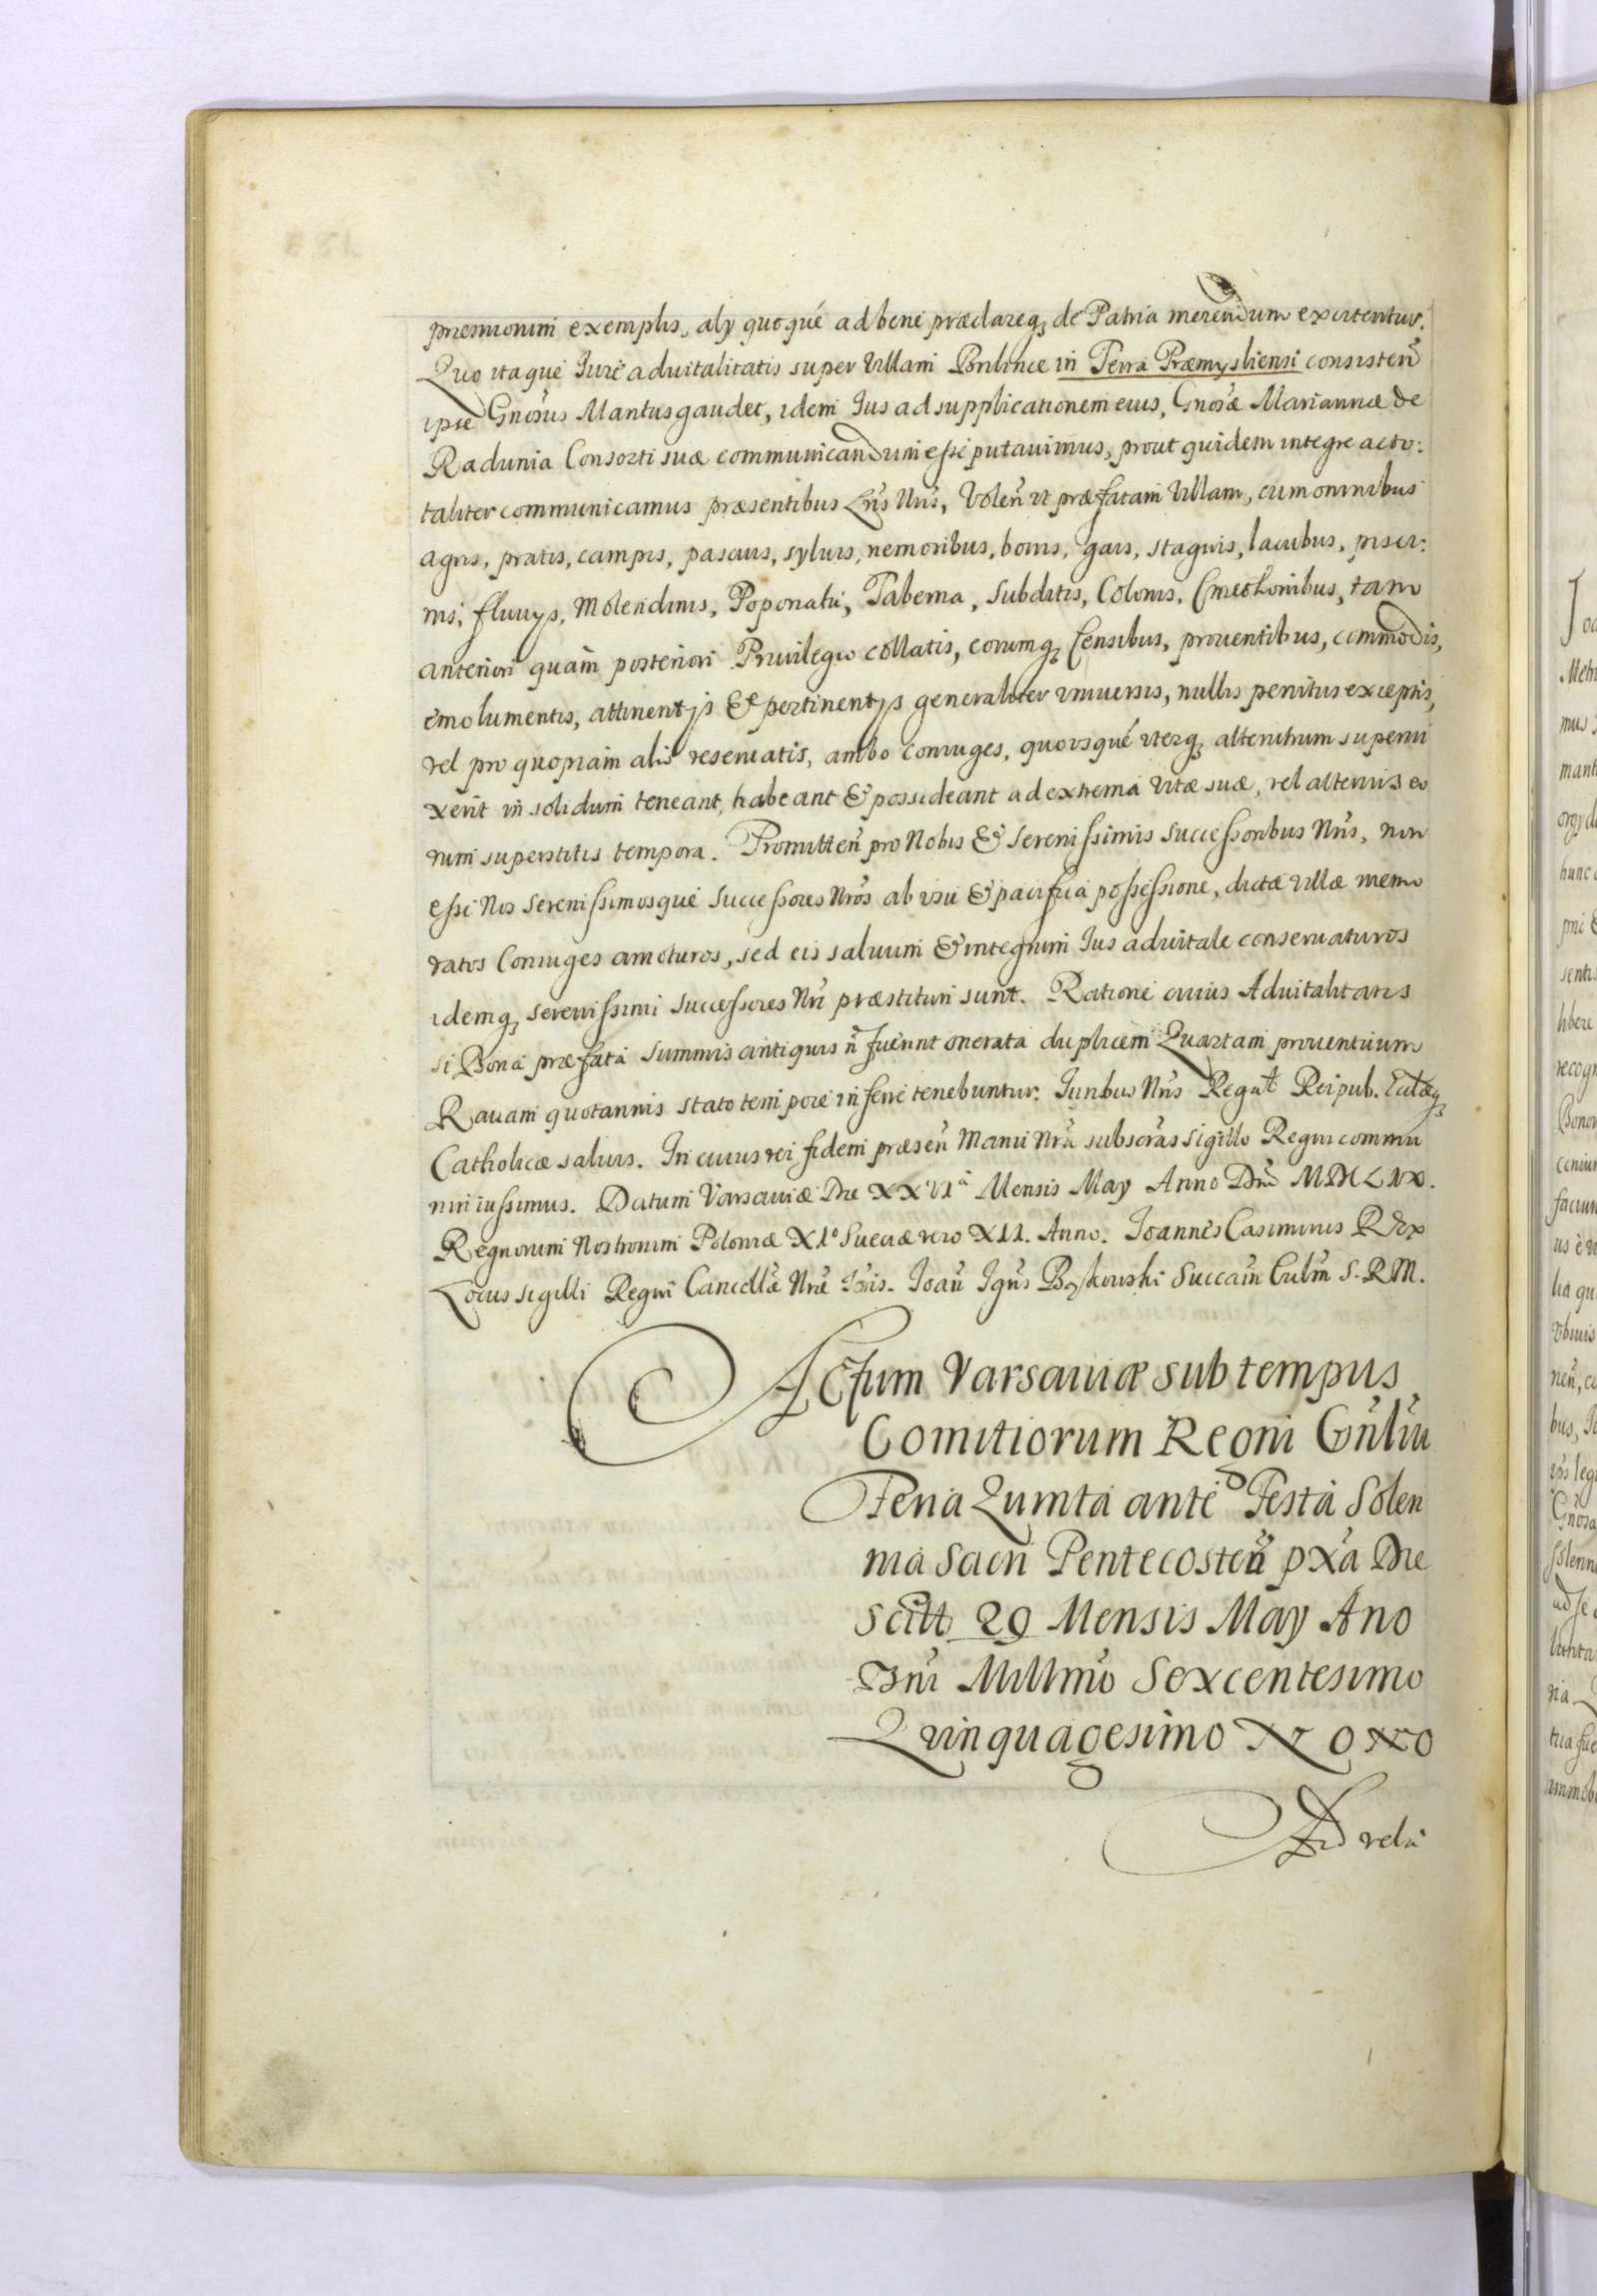 præmiorum exemplis, aly quoque ad bene præclareq; de Patria merendum excitentur.
Quo itaque Iure aduitalitatis super Villam Brilince in Terra Præmysliensi consisteñ
ipse Gnosus Mantus gaudet, idem Ius ad supplicationem eius, Gnosæ Mariannæ de
Radunia Consorti suæ communicandum esse putauimus, prout quidem integre ac to:
taliter communicamus præsentibus Lris Nris, Voleñ ut præfatam Villam, cum omnibus
agris, pratis, campis, pascuis, syluis, nemoribus, boris, gais, stagnis, lacubus, pisci:
nis, fluuys, Molendinis, Poponatu, Taberna, Subditis, Colonis, Cmethonibus, tam
anteriori quam posteriori Priuilegio collatis, eorumq; Censibus, prouentibus, commodis,
emolumentis, attinentijs & pertinentijs generaliter vniuersis, nullis penitus exceptis,
vel pro quopiam alio reseruatis, ambo coniuges, quousque vterq; alterutrum superui
xerit in solidum teneant, habeant & possideant ad extrema vitæ suæ, vel alterius eo
rum superstitis tempora. Promitteñ pro Nobis & Serenissimis Successoribus Nris, non
esse Nos Serenissimosque Successores Nros ab vsu & pacifica possessione, dictæ Villæ memo
ratos Coniuges amoturos, sed eis saluum & integrum Ius aduitale conseruaturos
idemq; serenissimi successores Nri præstituri sunt. Ratione cuius Aduitalitatis
si Bona præfata summis antiquis ñ fuerint onerata duplicem Quartam prouentuum
Rauam quotannis stato tempore inferre tenebuntur. Iuribus Nris Regal Reipub. Eccláeq;
Catholicæ saluis. In cuius rei fidem præseñ Manu Nra subscras sigillo Regni commu
niri iussimus. Datum Varsauiæ Die XXVIa Mensis May Anno Dni MDCLIX.
Regnorum Nostrorum Poloniæ XIo Sueciæ vero XII. Anno. Ioannes Casimirus Rex
Locus sigilli Regni Cancellæ Nræ Ioris. Ioañ Igns Bąkowski Succam Culm S.R.M.
Actum Varsauiæ sub tempus
Comitiorum Regni Gnliu
Feria Quinta ante Festa Solen
nia Sacri Pentecosteñ pxa Die
scilt 29 Mensis May Ano
Dni Millmo Sexcentesimo
Quinquagesimo Nono
Ad rela